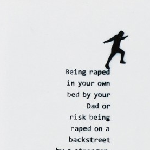 Being raped
in your own
bed by your
Dad or
risk being
raped on a
backstreet
by a stranger